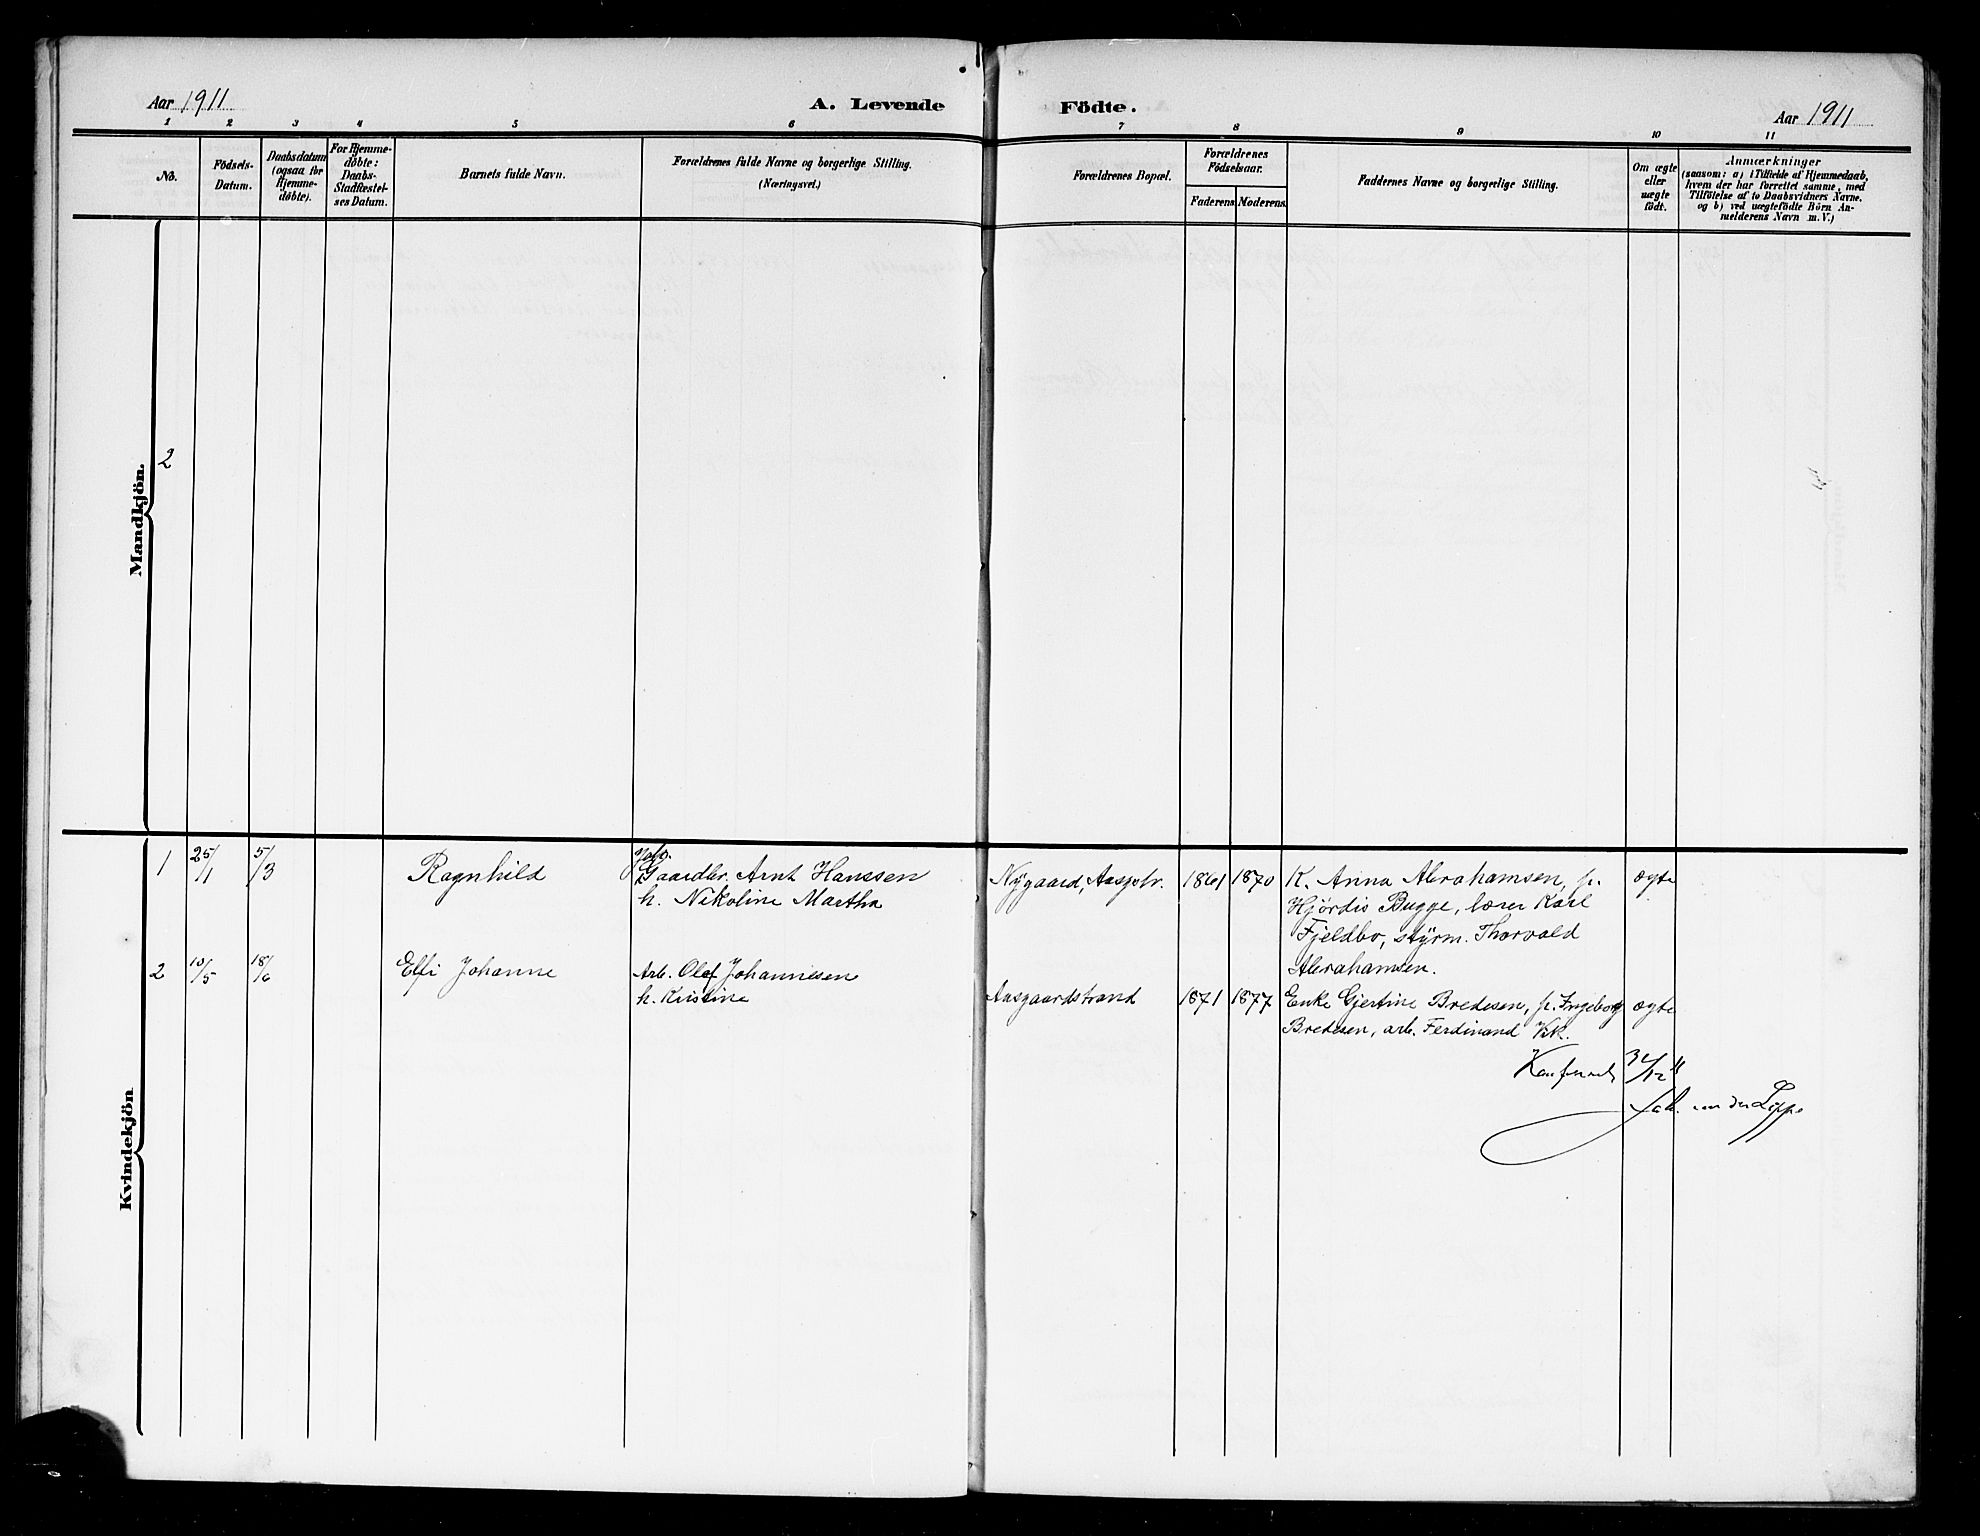 Aar 1911
A. Levende Födte.
Aar 1911
1 2 3 4 5 6 7 8 9 10 11
No.
Födsels-
Datum.
Daabsdatum
(ogsaa for
Hjemme-
døbte).
For Hjemme-
døbte:
Daabs-
Stadfæstel-
ses Datum.
Barnets fulde Navn.
Forældrenes fulde Navne og borgerlige Stilling.
(Næringsvei.)
Forældrenes Bopæl.
Forældrenes
Födselsaar.
Faderens. Moderens.
Faddernes Navne og borgerlige Stilling.
Om ægte
eller
uægte
födt.
Anmærkninger
(saasom: a) i Tilfælde af Hjemmedaab,
hvem der har forrettet samme, med
Tilföielse af to Daabsvidners Navne.
og b) ved uægtefödte Börn An-
melderens Navn m. V.)
Mandkjön.
2
Kvindekjön
1 25/1 5/3 Ragnhild
Gaardbr. Arnt Hanssen
h. Nikoline Martha
Nygaard, Aasgstr. 1861 1870
K. Anna Abrahamsen, p.
Hjördis Bugge, lærer Karl
Fjeldbo, styrm. Thorvald
Abrahamsen.
ægte
2 10/5 18/6 Elfi Johanne
Arb. Olaf Johannesen
h. Kristine
Aasgaardstrand 1871 1877
Enke Gjertine Bredesen, p. Ingeborg
Bredesen, arb. Ferdinand
ægte